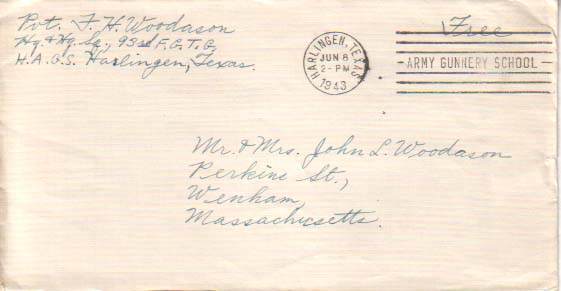 Pvt. F. H. Woodason
Hq. & Hq. Sq., 93rd F.G.T.G.
H.A.G.S. Harlingen, Texas.
HARLINGEN, TEXAS
JUN 8
2-PM
1943
Free
ARMY GUNNERY SCHOOL
Mr. & Mrs. John L. Woodason
Perkins St.,
Wenham,
Massachusetts.